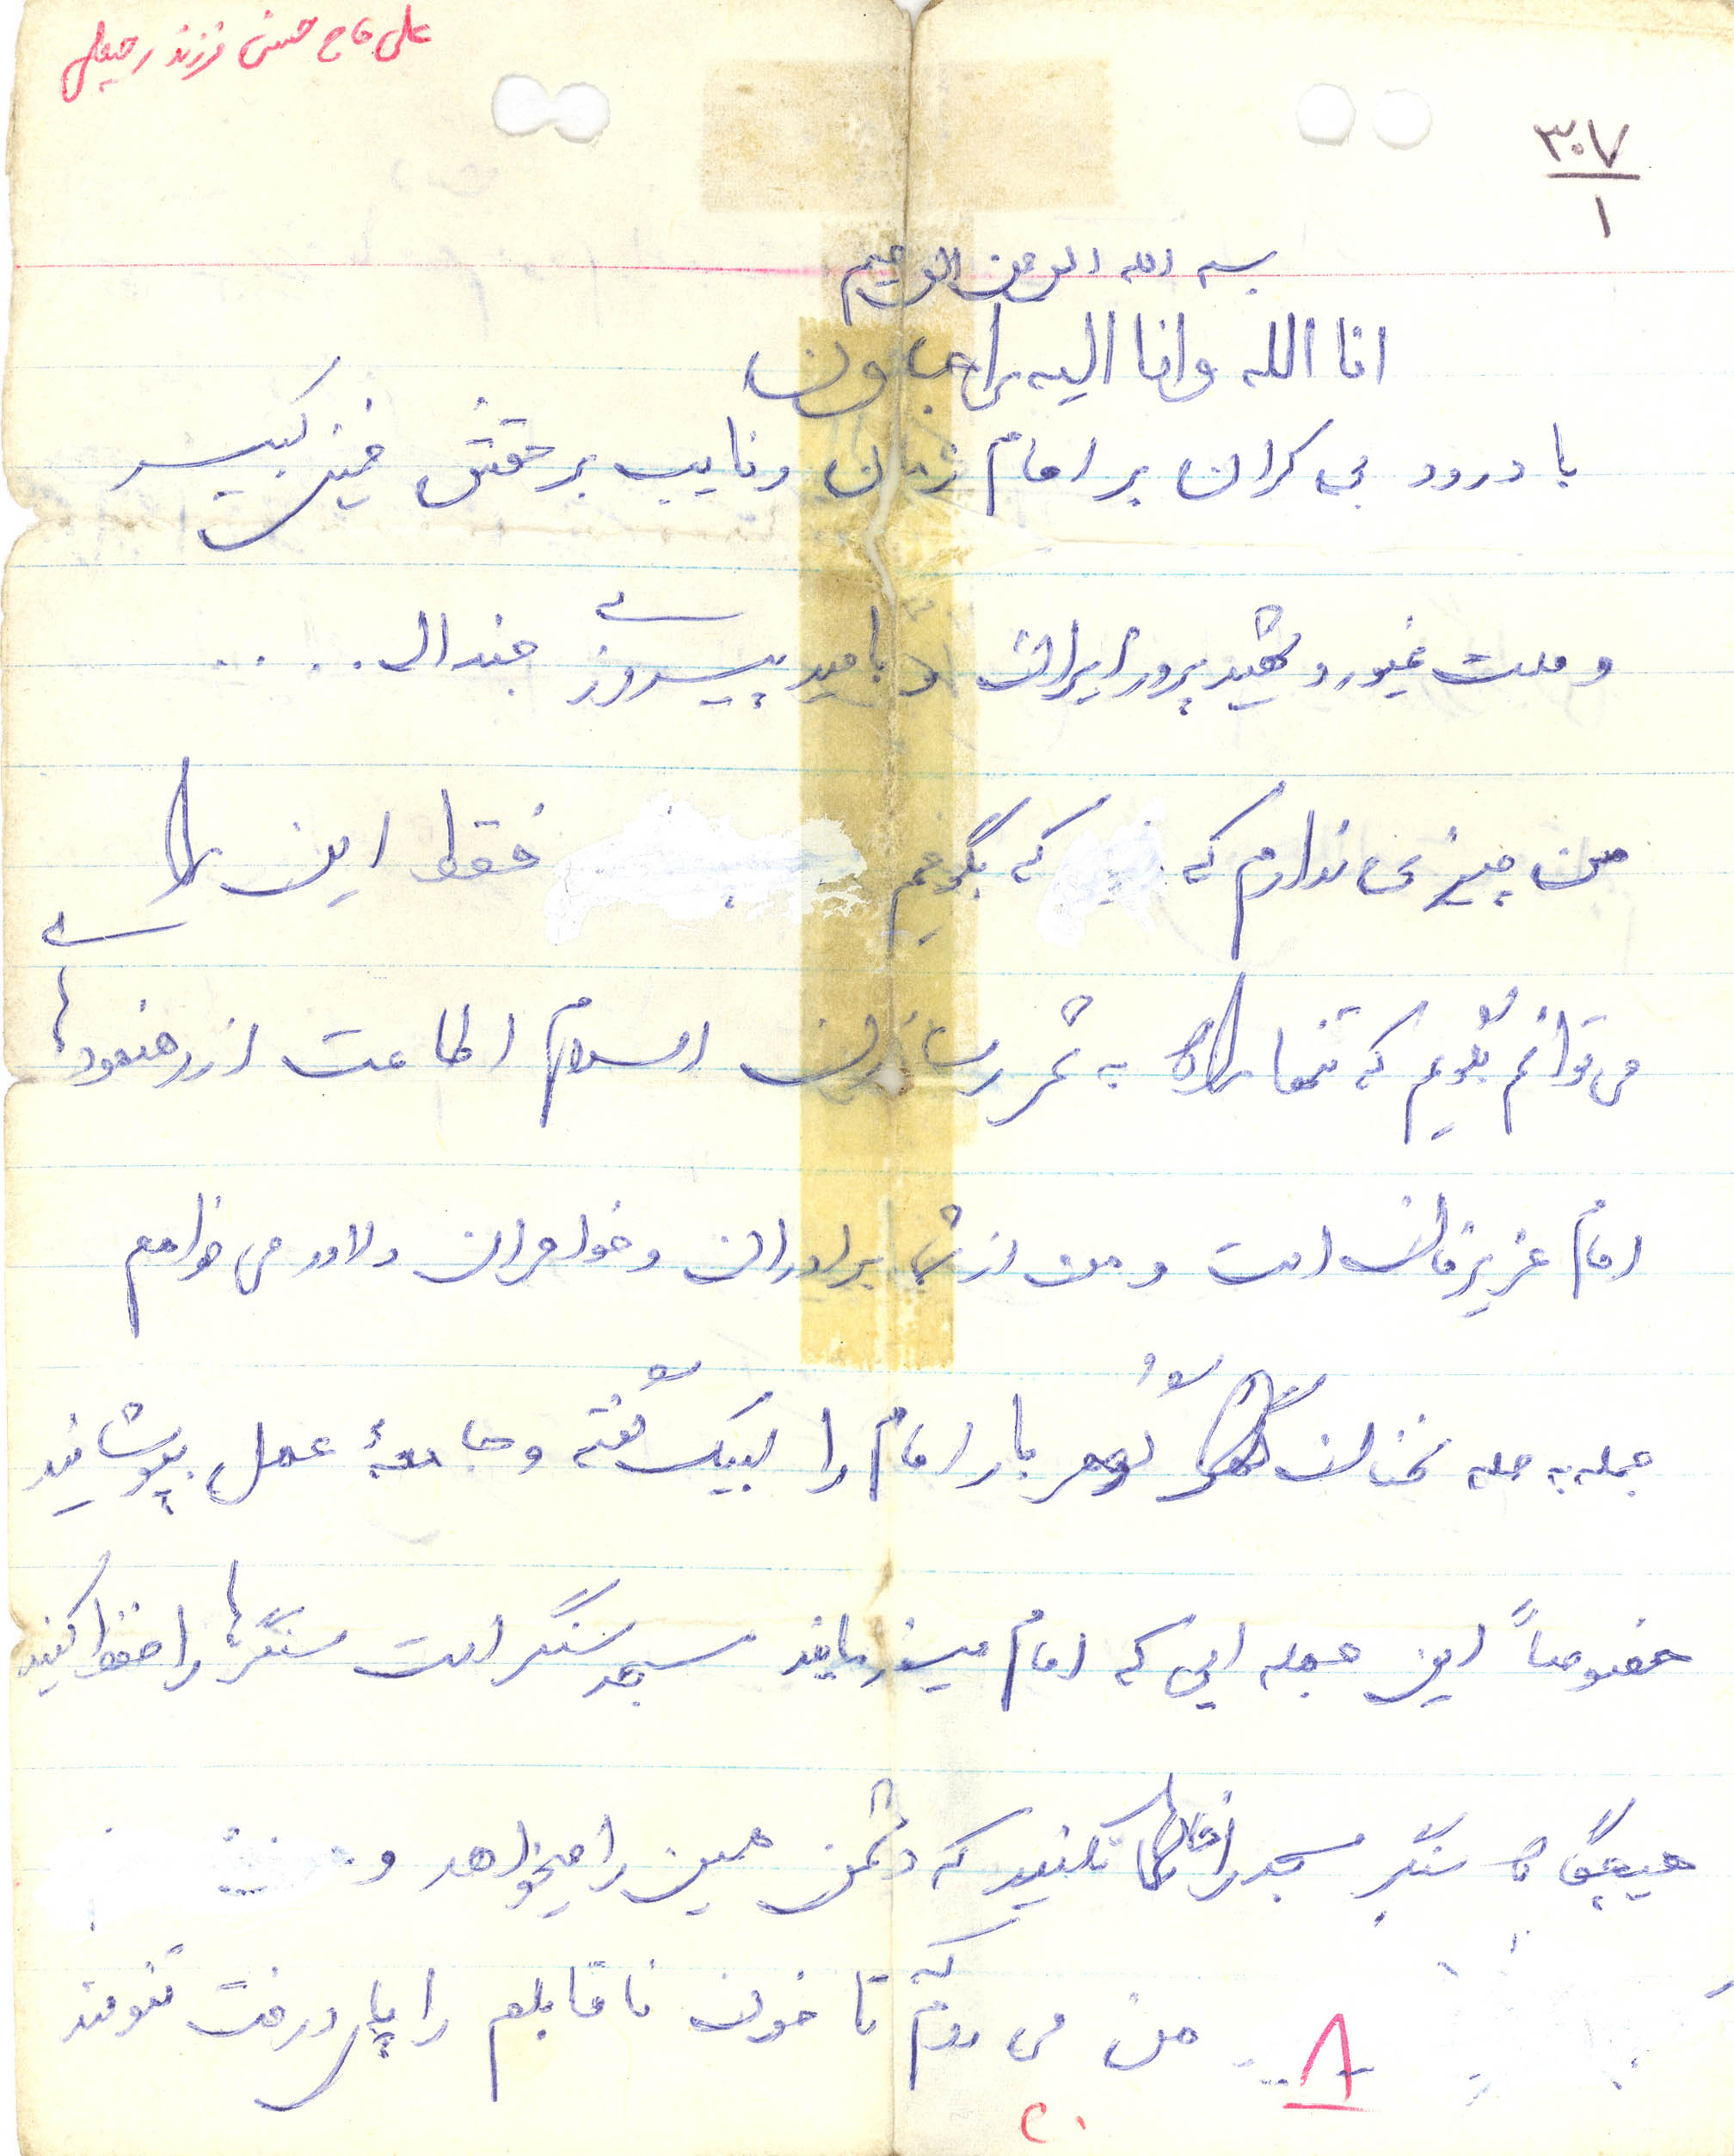 علی حاج حسنی فرزند رجبعلی
۳۰۷
۱
بسم الله الرحمن الرحیم
انا الله وانا الیه راجعون
با درود بی کران بر امام زمان و نایب بر حقش خمینی کبیر
و ملت غیور و شهید پرور ایران و با امید پیروزی جندالله . . . .
من چیزی ندارم که که بگویم فقط این را
می توانم بگویم که تنها راه به ثمر رساندن اسلام اطاعت از رهنمودهای
امام عزیزمان است و من از شما برادران و خواهران دلاور می خواهم
جمله به جمله سخنان گهر بار امام را لبیک گفته و جامهٔ عمل بپوشانید
خصوصاً این جمله ایی که امام میفرمایند مسجد سنگر است سنگرها را حفظ کنید
هیچگاه سنگر مسجد را خالی نکنید که دشمن همین را میخواهد و
من می روم که تا خون ناقابلم را پای درخت تنومند
۸
۲۰